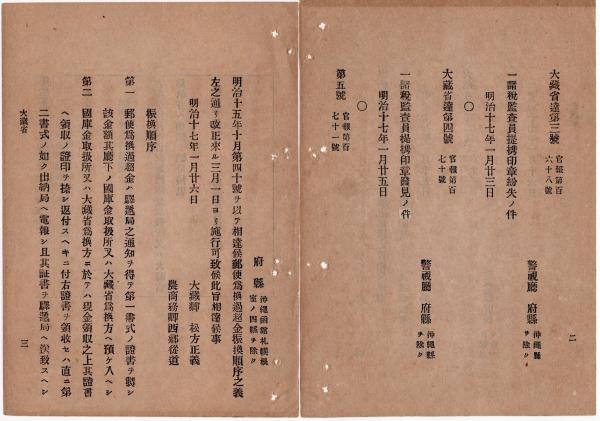 大藏省達第三號 官報第百六十八號
警視廳 府縣 沖繩縣ヲ除ク
一諸稅監査員提携印章紛失ノ件
明治十七年一月廿三日
○
大藏省達第四號 官報第百七十號
警視廳 府縣 沖繩縣ヲ除ク
一諸稅監査員提携印章發見ノ件
明治十七年一月廿五日
○
第五號 官報第百七十一號
二
府縣 沖繩函館札幌根室ノ四縣ヲ除ク
明治十五年十月第四十號ヲ以テ相達候郵便爲換過超金振換順序之義
左之通リ改正來ル三月一日ヨリ施行可致候此旨相達候事
明治十七年一月廿六日
大藏卿 松方正義
農商務卿西鄕從道
振換順序
第一 郵便爲換過超金ハ驛遞局之通知ヲ得テ第一書式ノ證書ヲ製シ
該金額其廳下ノ國庫金取扱所又ハ大藏省爲換方ヘ預ケ入ヘシ
第二 國庫金取扱所又ハ大藏省爲換方ニ於テハ現金領取之上其證書
ヘ領收ノ證印ヲ捺シ返付スヘキニ付右證書ヲ領收セハ直ニ第
二書式ノ如ク出納局ヘ電報シ且其証書ヲ驛遞局ヘ送致スヘシ
大藏省
三